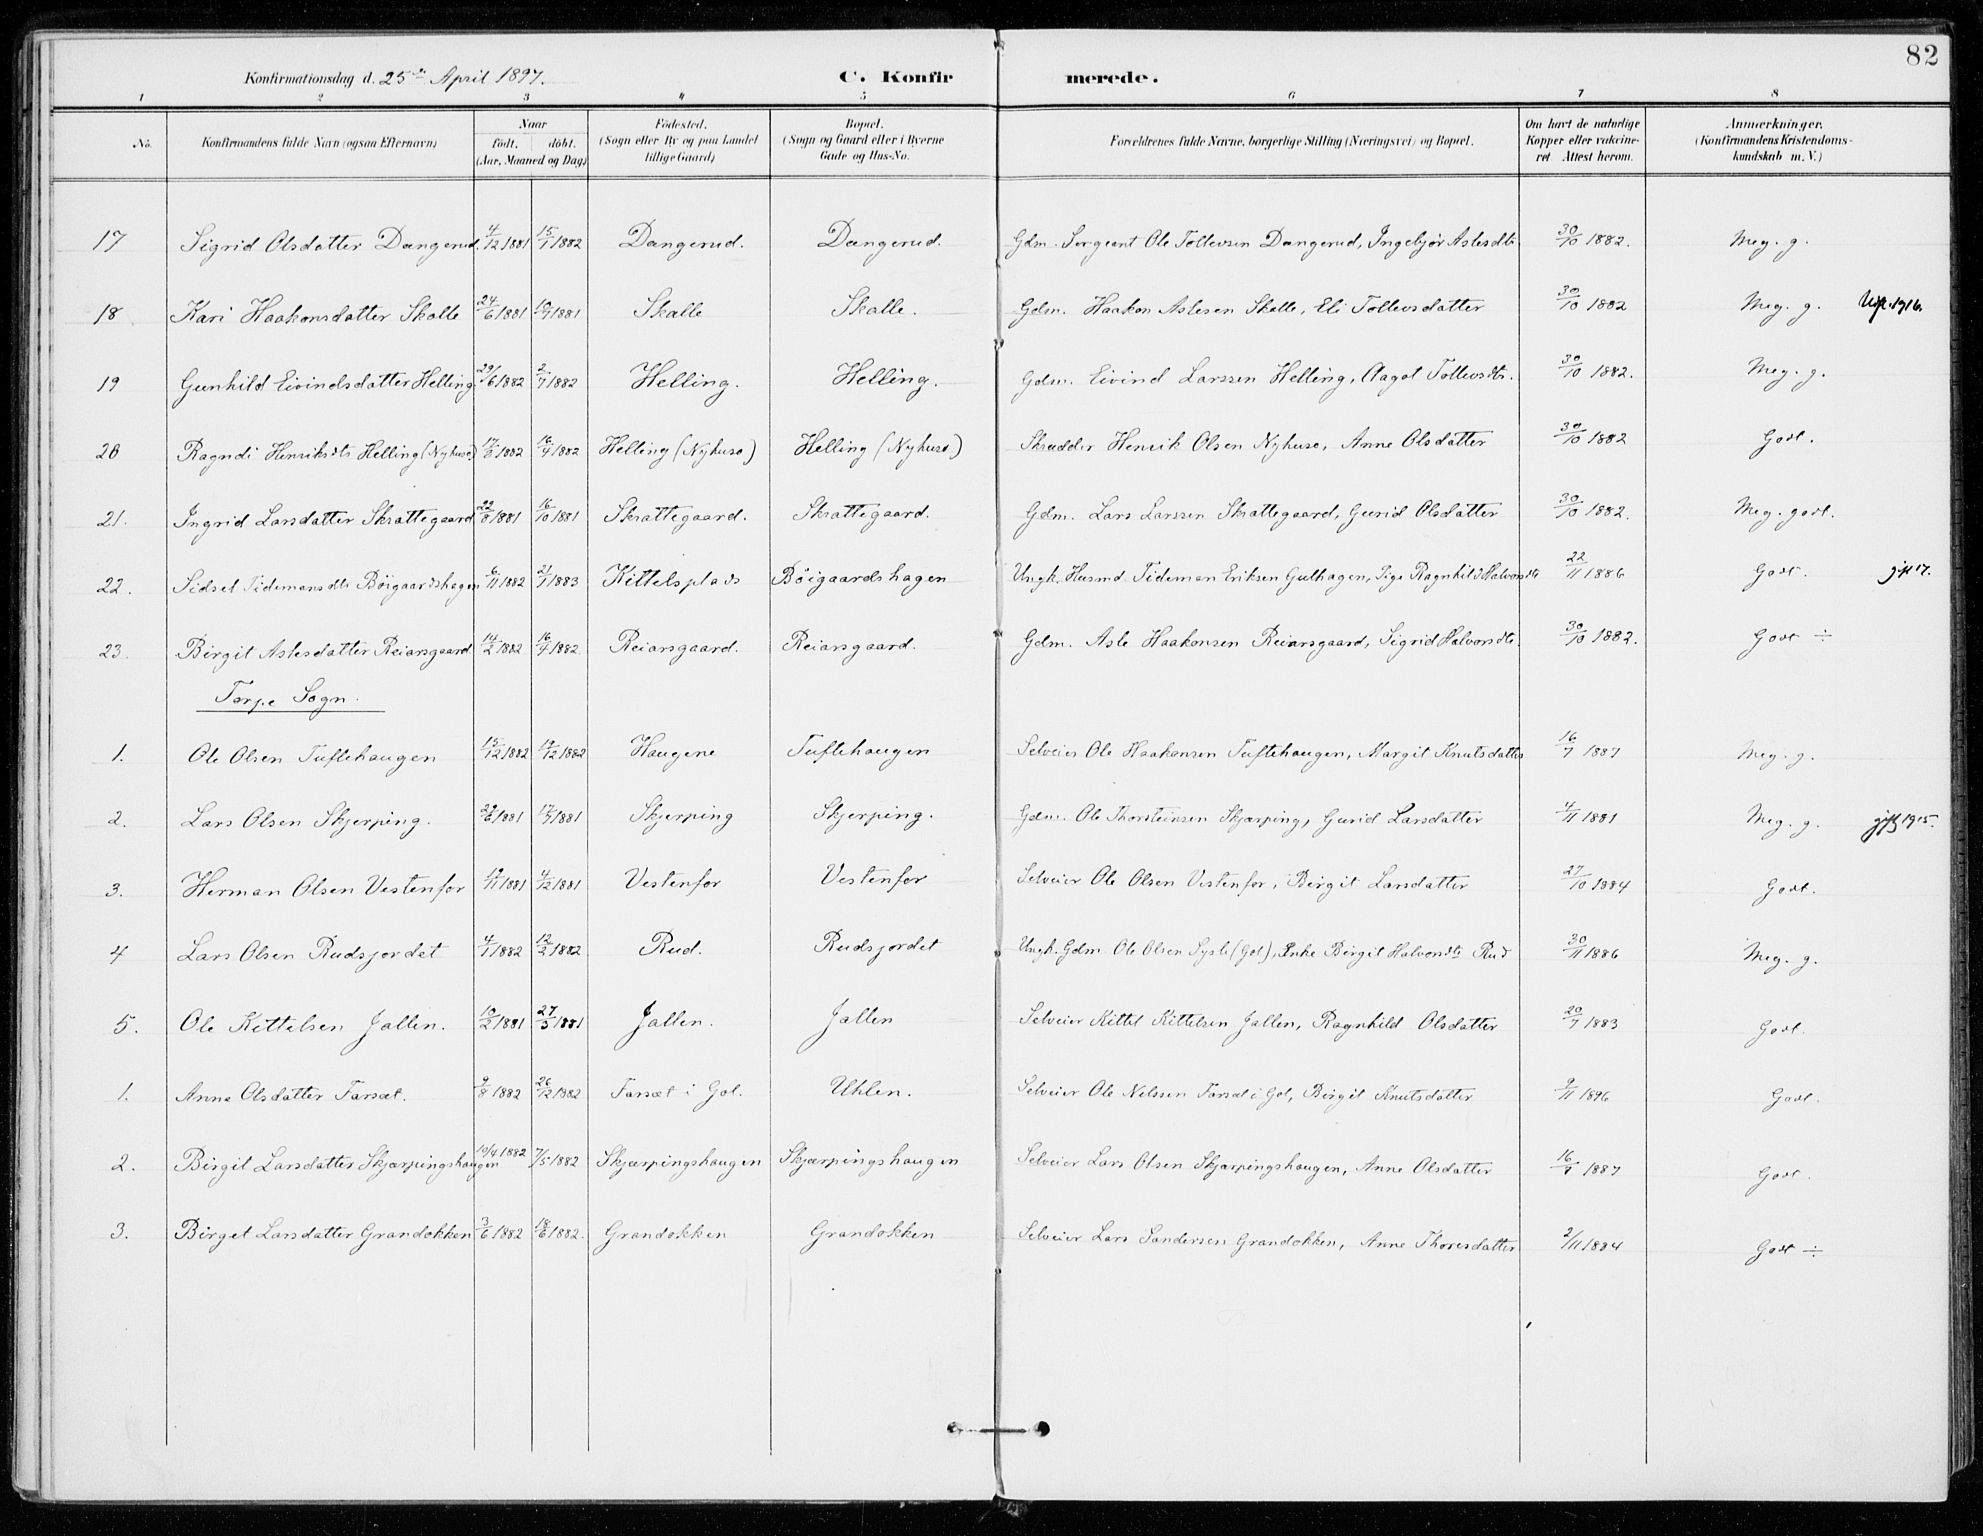 82
Konfirmationsdag d. 25de April 1897. C. Konfir merede.
1 2 3 4 5 6 7 8
No. Konfirmandens fulde Navn (ogsaa Efternavn) Naar født. døbt. (Aar, Maaned og Dag) Fødested. (Sogn eller By og paa Landet tillige Gaard) Bopæl. (Sogn og Gaard eller i Byerne Gade og Hus-No. Forældrenes fulde Navne, borgerlige Stilling (Næringsvei) og Bopæl. Om havt de naturlige Kopper eller vakcineret. Attest herom. Anmærkninger. (Konfirmandens Kristendomskundskab m. V.)
17 Sigrid Olsdatter Dængerud. 4/12 1881 15/1 1882 Dængerud. Dængerud. Gdm. Sergeant Ole Tollevsen Dængerud, Ingebjør Aslesdtr 30/10 1882. Meg. g.
18 Kari Haakonsdatter Skalle 24/6 1881 10/7 1881 Skalle Skalle. Gdm. Haakon Aslesen Skalle, Eli Tollevsdatter 30/10 1882 Meg. g. 1916.
19 Gunhild Eivindsdatter Helling 29/6 1882 2/7 1882 Helling. Helling. Gdm. Eivind Larssen Helling, Aagot Tollevsdtr. 30/10 1882. Meg. g.
20 Ragndi Henriksdtr Helling (Nyhuso) 17/3 1882 16/4 1882 Helling (Nyhuso) Helling (Nyhuso) Skrædder Henrik Olsen Nyhuso, Anne Olsdatter 30/10 1882 Godt.
21. Ingrid Larsdatter Skrattegaard 22/8 1881 16/10 1881 Skrattegaard. Skrattegaard. Gdm. Lars Larssen Skrattegaard, Gurid Olsdatter 30/10 1882. Meg. godt.
22. Sidsel Tidemansdtr Böigaardshagen 6/11 1882 21/1 1883 Kittelsplads Böigaardshagen Ungk. Husmd. Tideman Eriksen Gulhagen, Pige Ragnhild Halvorsdtr 22/11 1886 Godt. gift 17.
23. Birgit Aslesdatter Reiarsgaard 14/2 1882 16/4 1882. Reiarsgaard. Reiarsgaard. Gdm. Asle Haakonsen Reiarsgaard, Sigrid Halvorsdtr. 30/10 1882. Godt ÷
Torpe Sogn.
1. Ole Olsen Tuftehaugen 15/12 1882 19/12 1882 Haugene Tuftehaugen Selveier Ole Haakonsen Tuftehaugen, Margit Knutsdatter 16/7 1887 Meg. g.
2. Lars Olsen Skjerping. 29/6 1881 17/7 1881 Skjerping Skjerping. Gdm. Ole Thorsteinsen Skjærping, Gurid Larsdatter 4/11 1881 Meg. g. gift 1915.
3. Herman Olsen Vestenfor 19/11 1881 4/12 1881 Vestenfor Vestenfor Selveier Ole Olsen Vestenfor, Birgit Larsdatter 27/10 1884 Godt.
4 Lars Olsen Rudsjordet 4/1 1882 12/2 1882 Rud. Rudsjordet Ungk. Gdm. Ole Olsen Sysle (Gol), Enke Birgit Halvorsdtr Rud 30/11 1886 Meg. g.
5. Ole Kittelsen Jallen. 10/2 1881 27/3 1881 Jallen. Jallen Selveier Kittel Kittelsen Jallen, Ragnhild Olsdatter 20/7 1883 Godt.
1. Anne Olsdatter Farsæt. 9/8 1882 26/12 1882 Farsæt i Gol. Uhlen. Selveier Ole Nilssen Farsæt i Gol, Birgit Knutsdatter 9/11 1896 Godt.
2. Birgit Larsdatter Skjærpingshaugen 10/4 1882 7/5 1882 Skjærpingshaugen Skjærpingshaugen Selveier Lars Olsen Skjærpingshaugen, Anne Olsdatter 16/7 1887 Godt.
3. Birget Larsdatter Grandokken 3/6 1882 18/6 1882. Grandokken Grandokken Selveier Lars Sandersen Grandokken, Anne Thoresdatter 2/11 1884 Godt ÷